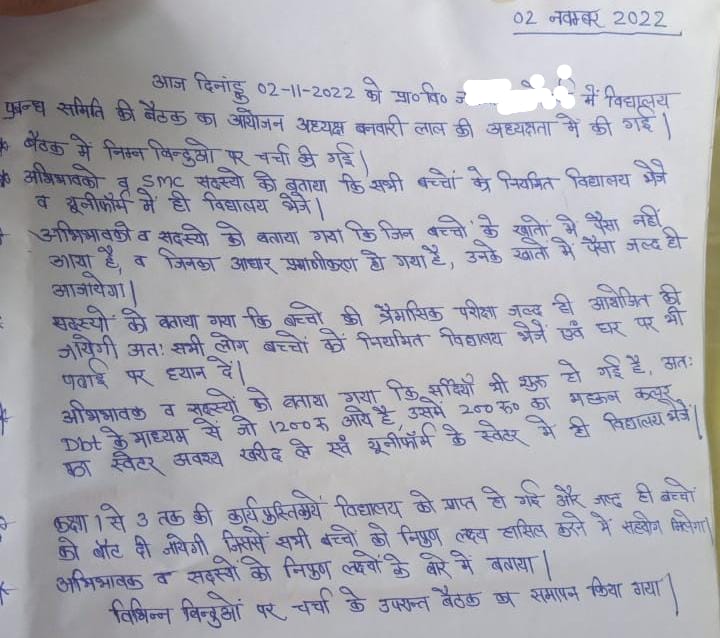 02 नवम्बर 2022
आज दिनांक 02-11-2022 को प्रा० वि० में विद्यालय
प्रबन्ध समिति की बैठक का आयोजन अध्यक्ष बनवारी लाल की अध्यक्षता में की गई |
* बैठक में निम्न बिन्दुओ पर चर्चा की गई |
* अभिभावको व SMC सदस्यो को बताया कि सभी बच्चों को नियमित विद्यालय भेजे
व यूनीफॉर्म में ही विद्यालय भेजे |
अभिभावको व सदस्यो को बताया गया कि जिन बच्चो के खातों में पैसा नही
आया है, व जिनका आधार प्रमाणीकरण हो गया है, उनके खातो में पैसा जल्द ही
आजायेगा |
सदस्यों को बताया गया कि बच्चो की त्रैमासिक परीक्षा जल्द ही आयोजित की
जायेगी अतः सभी लोग बच्चों को नियमित विद्यालय भेजें एवं घर पर भी
पढाई पर ध्यान दें |
* अभिभावक व सदस्यों को बताया गया कि सर्दियाँ भी शुरू हो गई है, अतः
Dbt के माध्यम से जो 1200 रु आये है, उसमें 200 रु० का महरून कलर
का स्वेटर अवश्य खरीद ले एवं यूनीफॉर्म के स्वेटर में ही विद्यालय भेजें |
कक्षा 1 से 3 तक की कार्य पुस्तिकायें विद्यालय को प्राप्त हो गई और जल्द ही बच्चों
को बाँट दी जायेगी जिससे सभी बच्चो को निपुण लक्ष्य हासिल करने में सहयोग मिलेगा|
* अभिभावक व सदस्यों को निपुण लक्ष्यों के बारे में बताया |
विभिन्न बिन्दुओं पर चर्चा के उपरान्त बैठक का समापन किया गया |